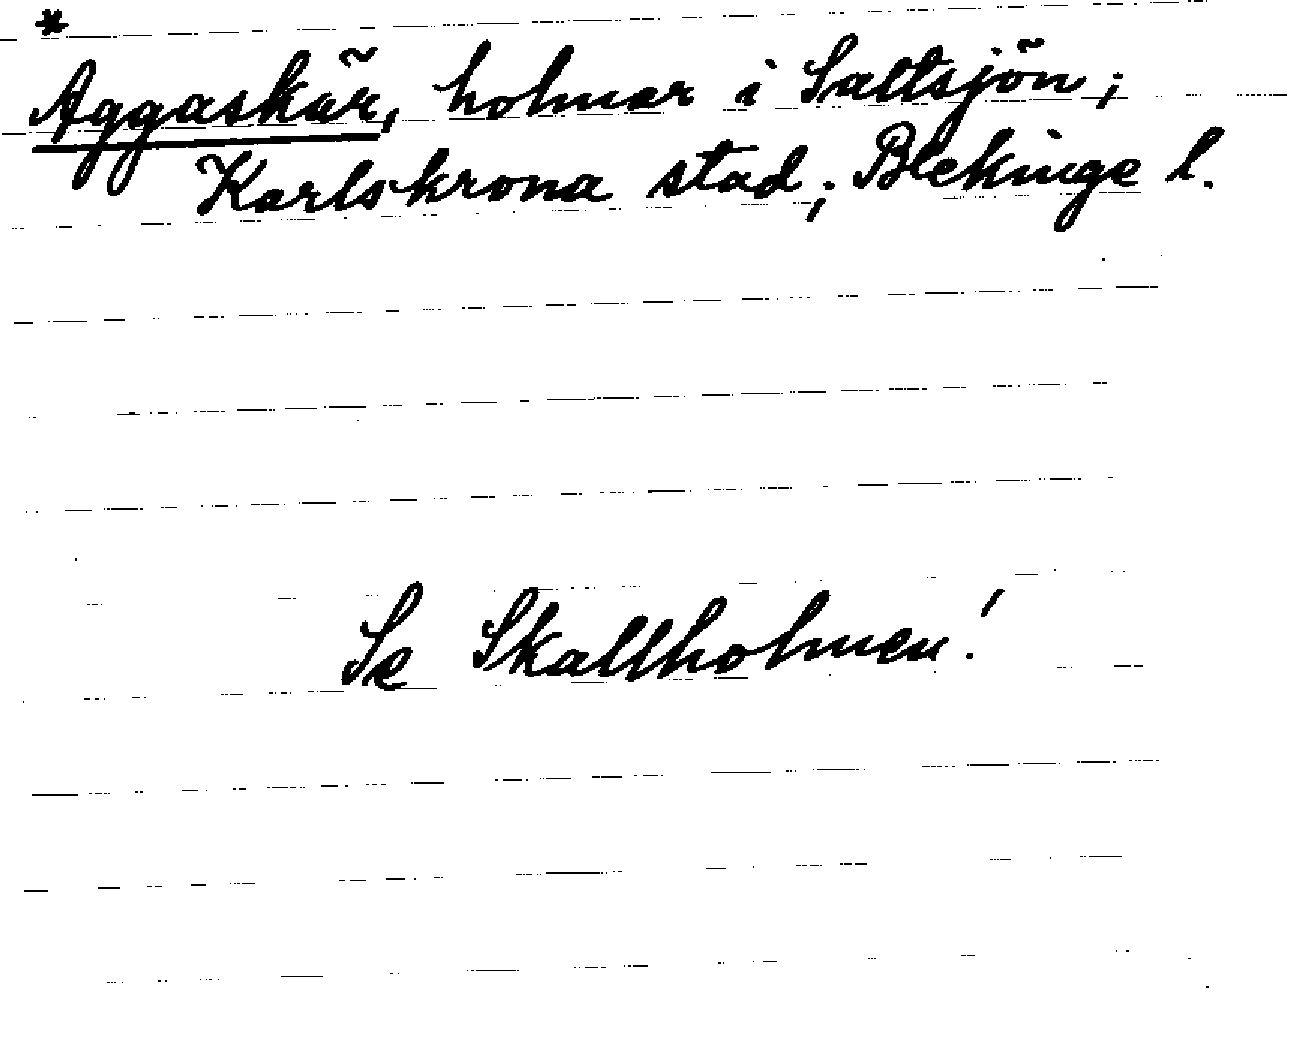 *
Aggaskär, holmar i Saltsjön;
Karlskrona stad; Blekinge l.
Se Skallholmen!